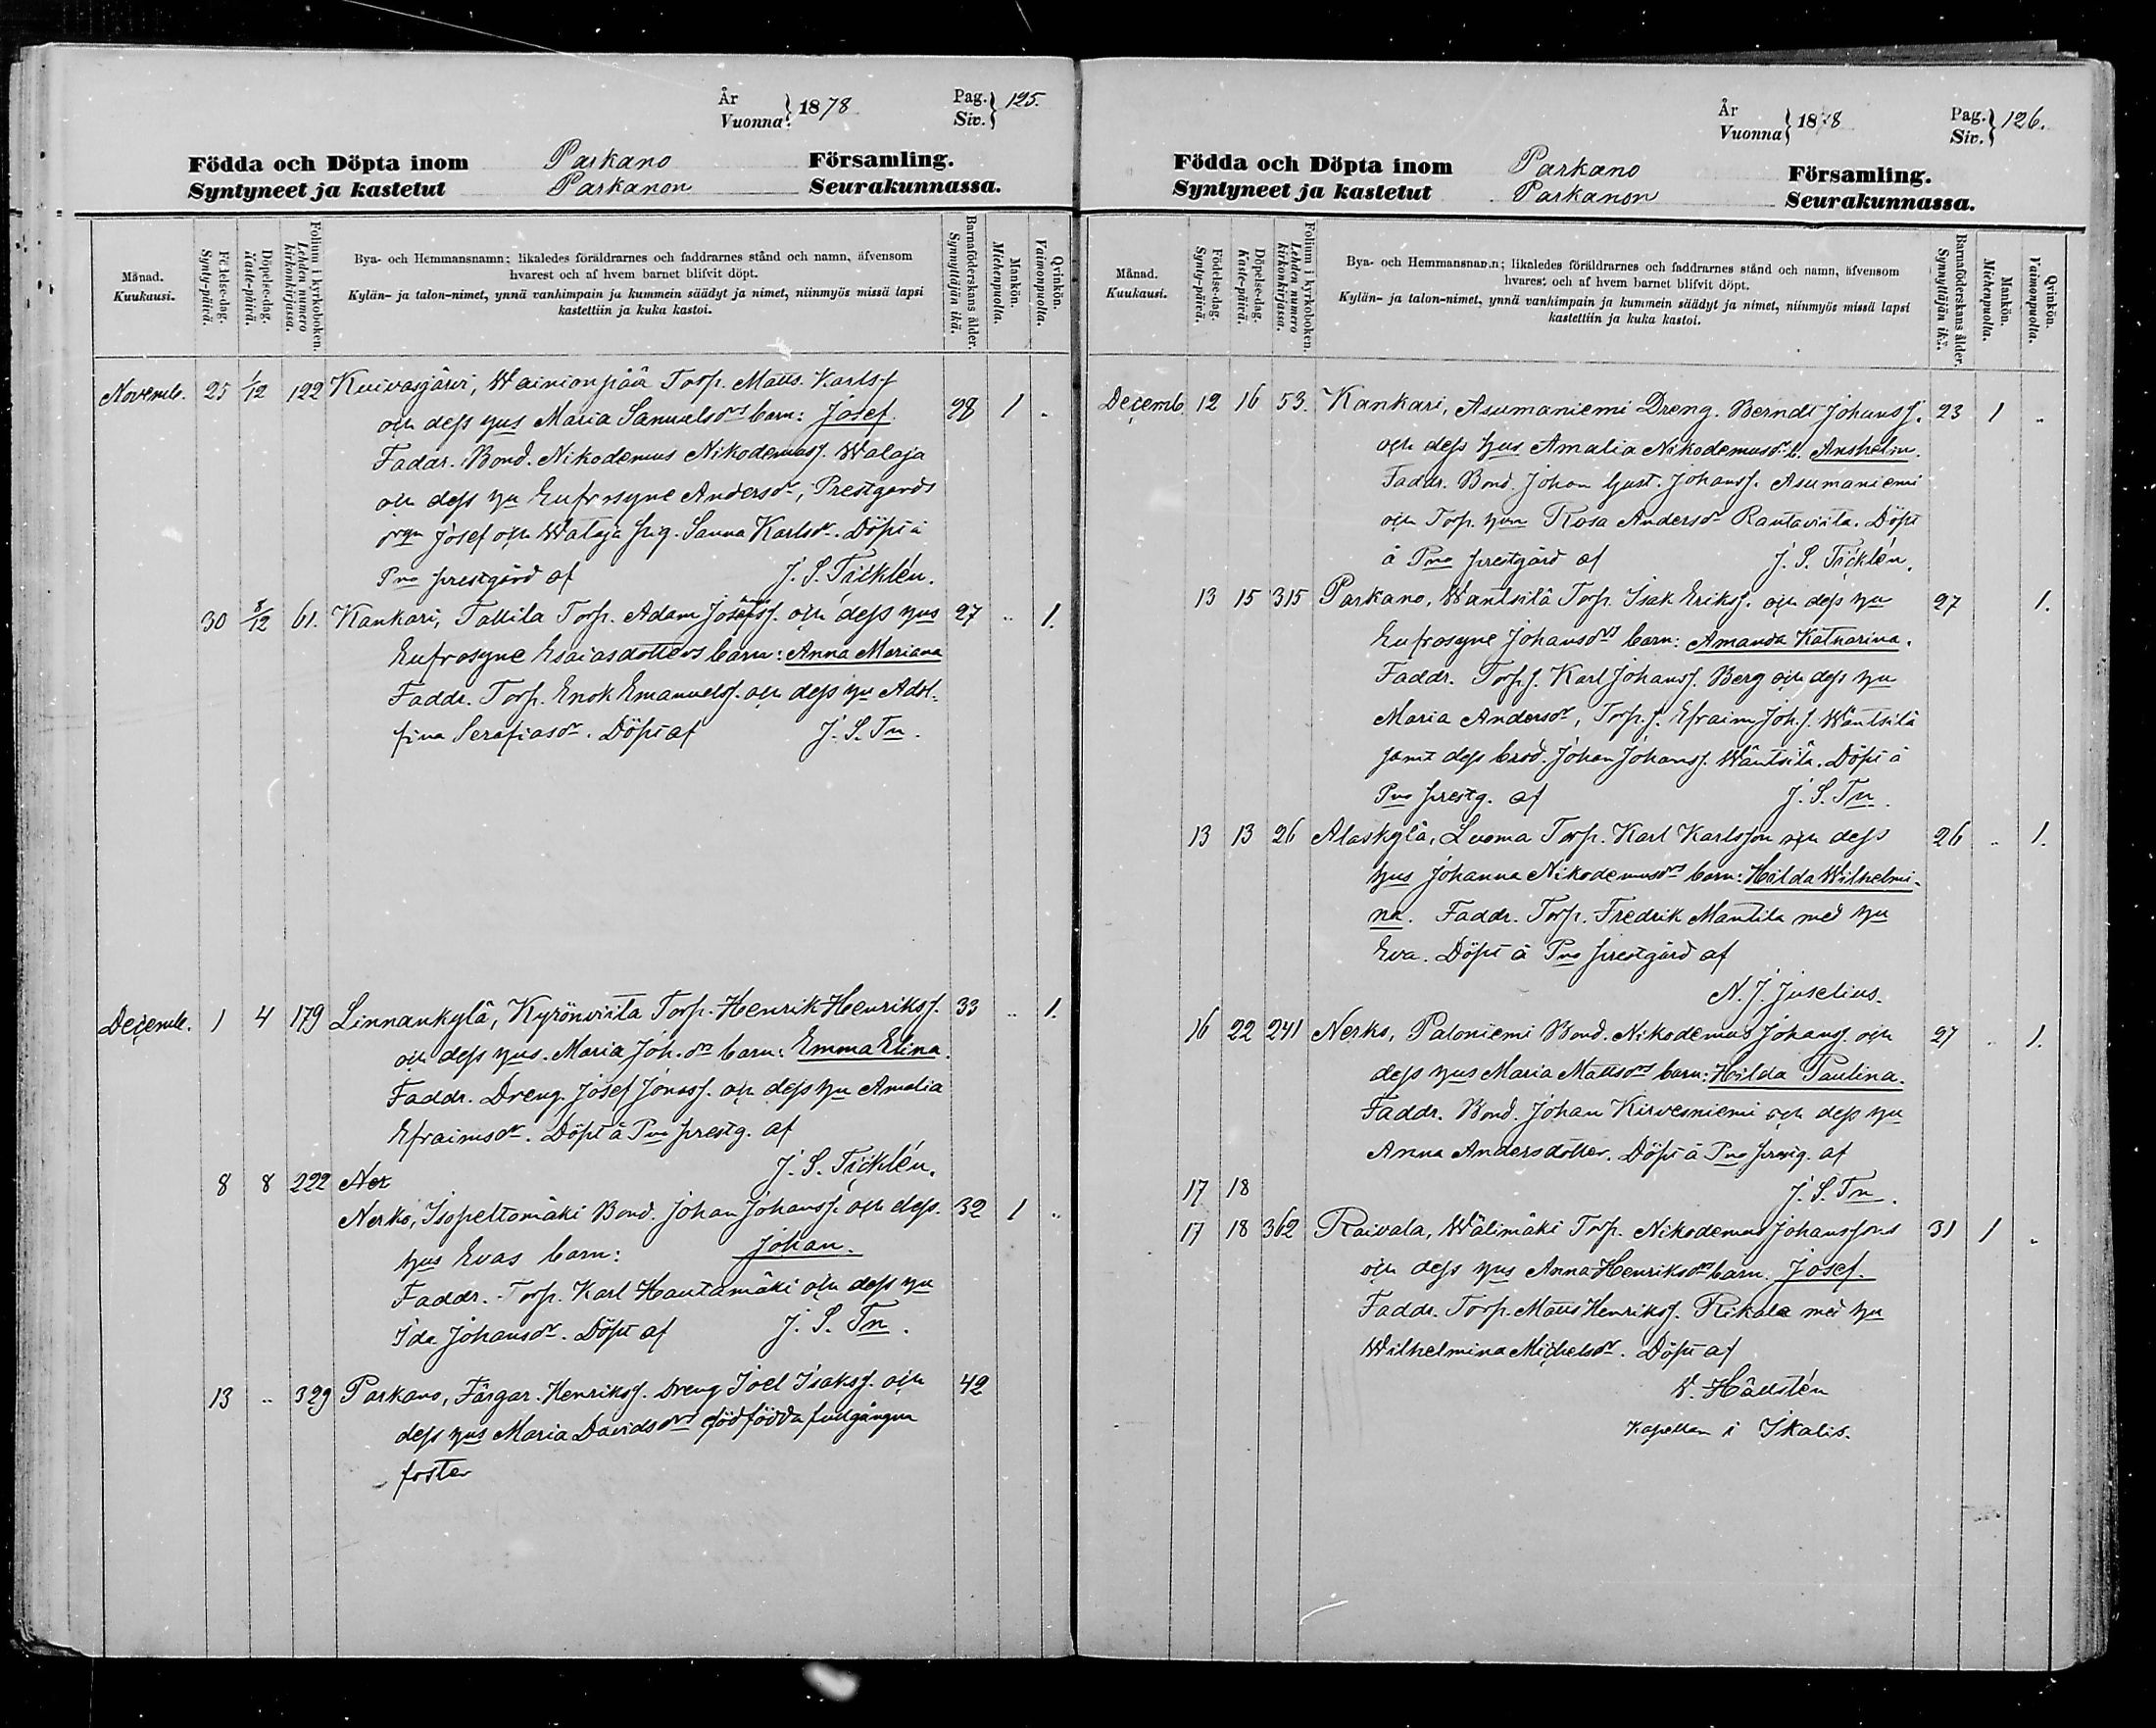 År
Vuonna } 1878
Pag.
Siv. } 125.
Födda och Döpta inom Parkano Församling.
Syntyneet ja kastetut Parkanon Seurakunnassa.
Månad.
Kuukausi.
Födelse-dag.
Synty-päivä.
Döpelse-dag.
Kaste-päivä.
Folium i kyrkoboken.
Lehden numero kirkonkirjassa.
Bya- och Hemmansnamn; likaledes föräldrarnes och faddrarnes stånd och namn, äfvensom
hvarest och af hvem barnet blifvit döpt.
Kylän- ja talon-nimet, ynnä vanhimpain ja kummein säädyt ja nimet, niinmyös missä lapsi
kastettiin ja kuka kastoi.
Barnaföderskans ålder.
Synnyttäjän ikä.
Mankön.
Miehenpuolta.
Qvinkön.
Vaimonpuolta.
Novemb. 25 1/12 122 Kuivasjärvi, Wainionpää Torp. Matts Karlsf
och dess hus Maria Samuelsdrs barn: Josef. 28 1 "
Faddr. Bond. Nikodemus Nikodemusf. Walaja
och dess hu Eufrosyne Andersdr, Prestgårds
Josef och Wataja pig. Sanna Karlsdr. Döpt å
Pno prestgård af J. S. Ticklén.
30 8/12 61. Kankari, Tallila Torp. Adam Josefsf. och dess hus 27 " 1.
Eufrosyne Esaiasdotters barn: Anna Mariana
Faddr. Torp. Enok Emanuelsf. och dess hu Adol-
fina Serafiasdr. Döpt af J. S. Tn.
Decemb. 1 4 179 Linnankylä, Kyrönviita Torp. Henrik Henriksf. 33 " 1.
och dess hus. Maria Joh.drs barn: Emma Elina.
Faddr. Dreng. Josef Jonasf. och dess hu Amalia
Efraimsdr. Döpt å Pno prestg. af
J. S. Ticklén.
8 8 222 Ner
Nerko, Isopeltomäki Bond. Johan Johansf. och dess 32 1 "
hus Evas barn: Johan.
Faddr. Torp. Karl Hautamäki och dess hu
Ida Johansdr. Döpt af J. S. Tn.
13 " 329 Parkano, Färgar. Henriksf. Dreng Joel Isaksf. och 42
dess hus Maria Davidsdrs dödfödda fullgångna
foster
År
Vuonna } 1878
Pag.
Siv. } 126.
Födda och Döpta inom Parkano Församling.
Syntyneet ja kastetut Parkanon Seurakunnassa.
Månad.
Kuukausi.
Födelse-dag.
Synty-päivä.
Döpelse-dag.
Kaste-päivä.
Folium i kyrkoboken.
Lehden numero kirkonkirjassa.
Bya- och Hemmansnamn; likaledes föräldrarnes och faddrarnes stånd och namn, äfvensom
hvarest och af hvem barnet blifvit döpt.
Kylän- ja talon-nimet, ynnä vanhimpain ja kummein säädyt ja nimet, niinmyös missä lapsi
kastettiin ja kuka kastoi.
Barnaföderskans ålder.
Synnyttäjän ikä.
Mankön.
Miehenpuolta.
Qvinkön.
Vaimonpuolta.
Decemb 12 16 53. Kankari, Asumaniemi Dreng. Berndt Johansf. 23 1 "
och dess hus Amalia Nikodemusdr. b. Anshelm.
Faddr. Bond. Johan Gust. Johansf. Asumaniemi
och Torp. hun Rosa Andersdr Rantaviita. Döpt
å Pno prestgård af J. S. Ticklén.
13 15 315 Parkano, Wäntsilä Torp. Isak Eriksf. och dess hu 27 1.
Eufrosyne Johansdrs barn: Amanda Katharina.
Faddr. Torp.f. Karl Johansf. Berg och dess hu
Maria Andersdr, Torp.f. Efraim Joh.f. Wäntsilä
samt dess brod. Johan Johansf. Wäntsilä. Döpt å
Pno prestg. af J. S. Tn.
13 13 26 Alaskylä, Luoma Torp. Karl Karlsson och dess 26 " 1.
hus Johanna Nikodemusdrs barn: Hilda Wilhelmi-
na. Faddr. Torp. Fredrik Mantila med hu
Eva. Döpt å Pno prestgård af
N. J. Juselius.
16 22 241 Nerko, Paloniemi Bond. Nikodemus Johansf. och 27 " 1.
dess hus Maria Mattsdrs barn: Hilda Paulina.
Faddr. Bond. Johan Kirvesniemi och dess hu
Anna Andersdotter. Döpt å Pno prestg. af
17 18 J. S. Tn.
17 18 362 Raivala, Wälimäki Torp. Nikodemus Johanssons 31 1 "
och dess hus Anna Henriksdrs barn. Josef.
Faddr. Torp. Matts Henriksf. Rikala med hu
Wilhelmina Michelsdr. Döpt af
V. Hällstén
Kapellan i Ikalis.